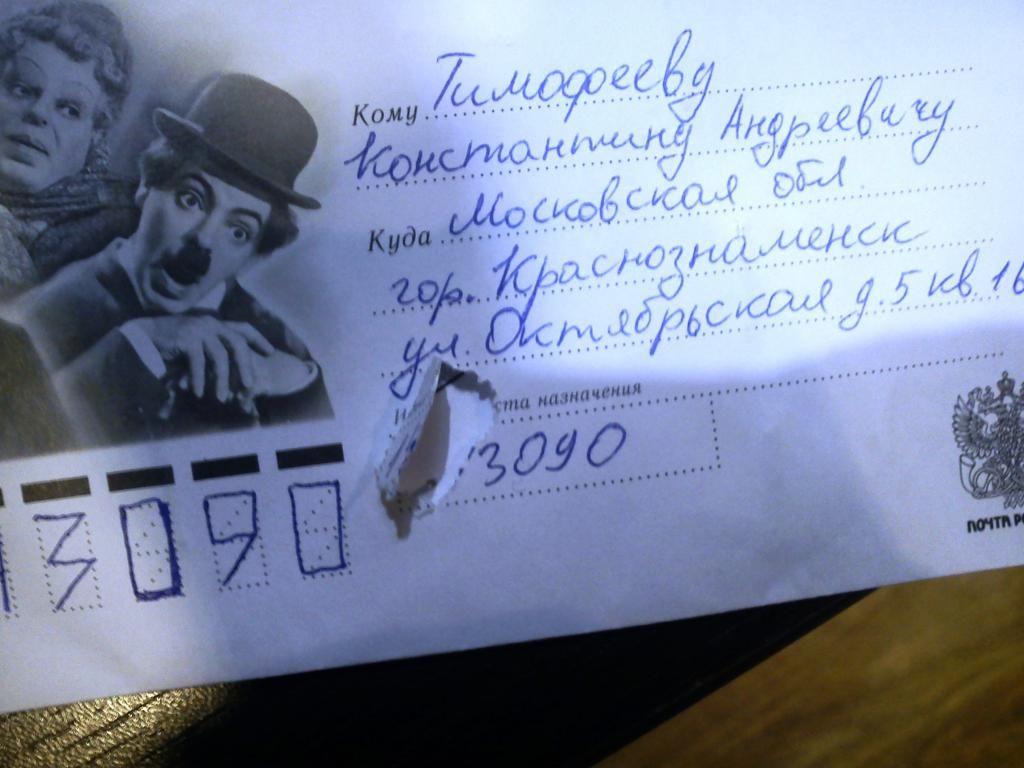 Кому Тимофееву
Константину Андреевичу
Куда Московская обл.
гор. Краснознаменск
ул. Октябрьская д. 5 кв. 16
назначения
3090
3090
ПОЧТА